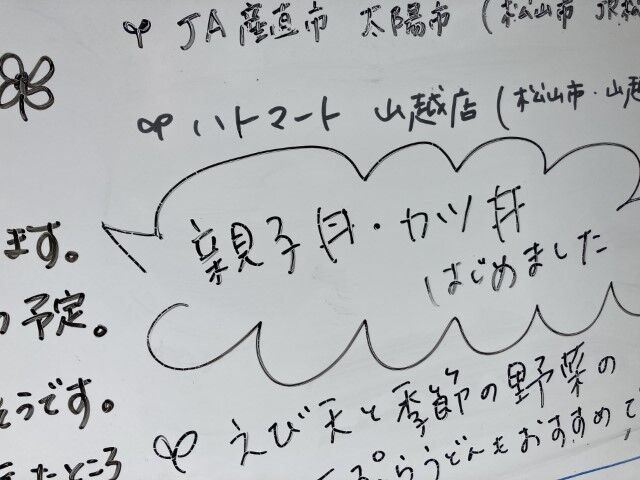 JA産直市 太陽市 (松山市 JR松
ハトマート 山越店 (松山市・山越
親子丼・カツ丼
はじめました
きます。
予定。
そうです。
えび天と季節の野菜の
天ぷらうどんもおすすめで
たところ